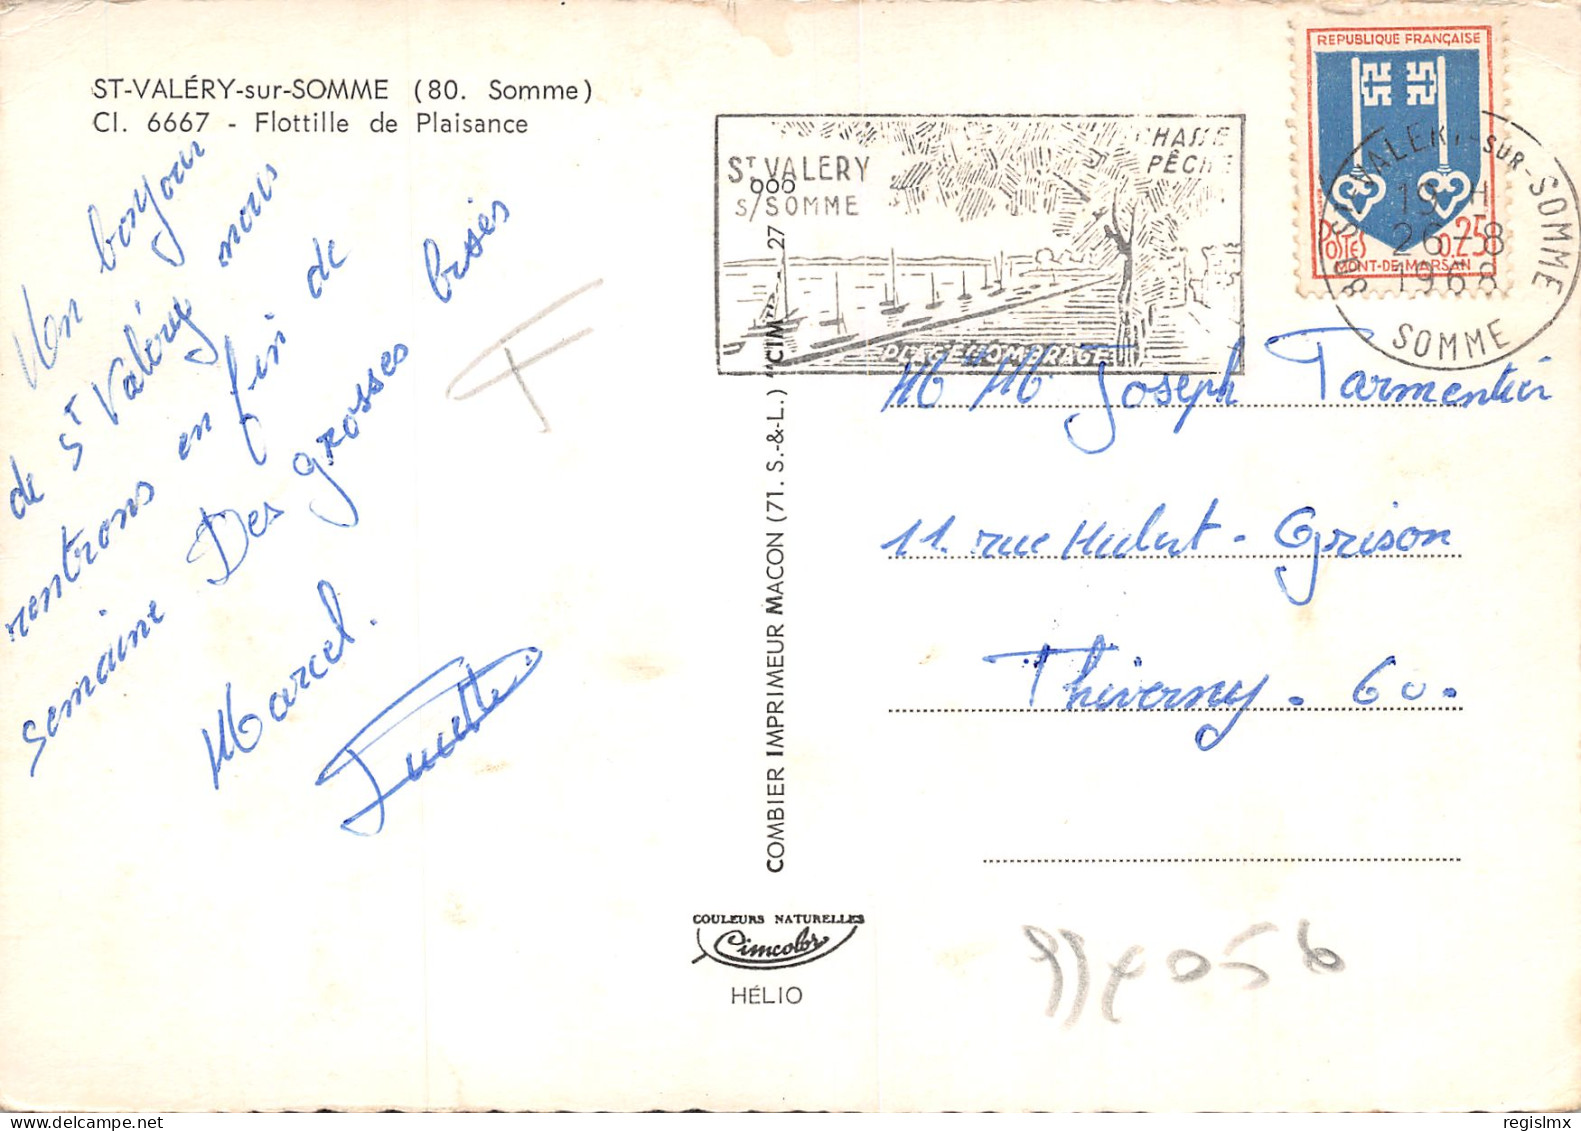 ST-VALÉRY-sur-SOMME (80. Somme)
Cl. 6667 - Flottille de Plaisance
Mon bonjour
de St Valéry nous
rentrons en fin de
semaine Des grosses bises
Marcel.
F
COMBIER IMPRIMEUR MACON (71. S.-&-L.) "CIM"
27
ST VALERY
S/SOMME
CHASSE
PÊCHE
PLAGE OMBRAGÉE
REPUBLIQUE FRANÇAISE
POSTES 0.25
MONT-DE-MARSAN
ST-VALERY-SUR-SOMME
19 H
26-8
1968
SOMME
M Me Joseph Parmentier
11. rue Hubert-Grison
Thiverny. 60.
COULEURS NATURELLES
Cimcolor
HÉLIO
regislmx